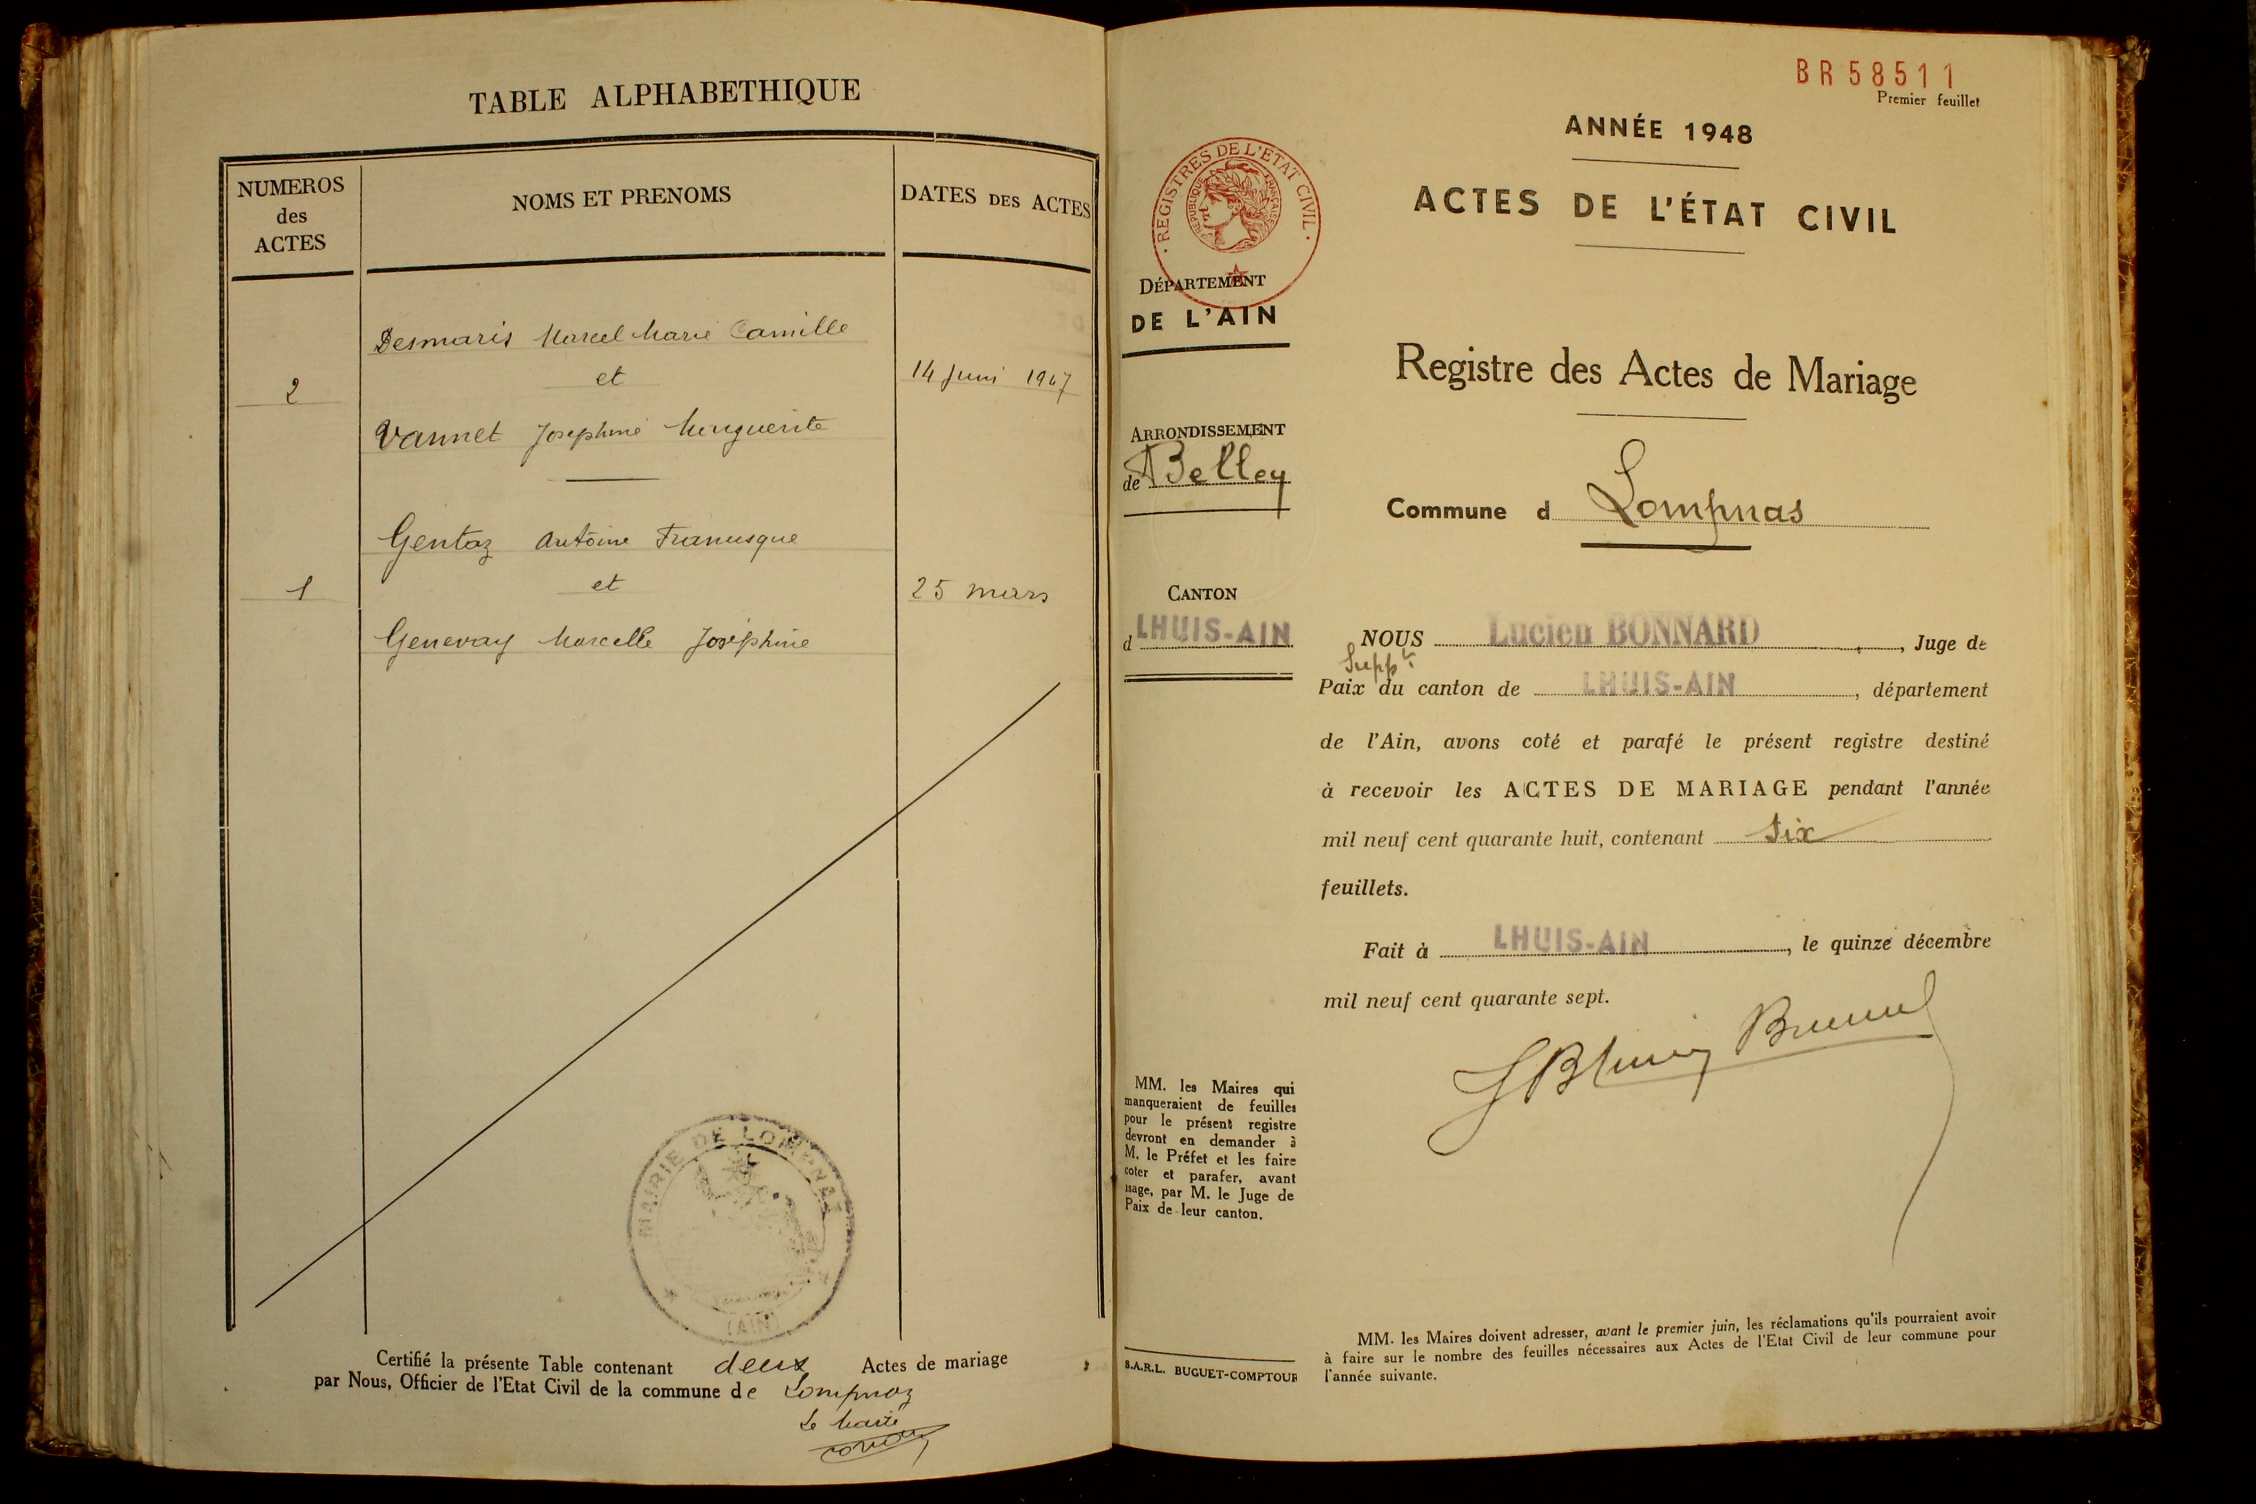 TABLE ALPHABETHIQUE
NUMEROS
des
ACTES
NOMS ET PRENOMS
DATES DES ACTES
Desmaris Marcel Marie Camille
2
et
14 Juin 1947
Vannet Josephine Marguerite
Gentaz Antoine Francisque
1
et
25 mars
Genevay Marcelle Joséphine
MAIRIE DE LOMPNAZ
(AIN)
Certifié la présente Table contenant deux Actes de mariage
par Nous, Officier de l'Etat Civil de la commune de Lompnaz
Le Maire
BR58511
Premier feuillet
ANNÉE 1948
ACTES DE L'ÉTAT CIVIL
· REGISTRES DE L'ETAT CIVIL ·
REPUBLIQUE FRANÇAISE
DÉPARTEMENT
DE L'AIN
ARRONDISSEMENT
de Belley
CANTON
d LHUIS-AIN
MM. les Maires qui
manqueraient de feuilles
pour le présent registre
devront en demander à
M. le Préfet et les faire
coter et parafer, avant
usage, par M. le Juge de
Paix de leur canton.
S.A.R.L. BUGUET-COMPTOUR
Registre des Actes de Mariage
Commune d Lompnas
NOUS Lucien BONNARD, Juge de
Suppt
Paix du canton de LHUIS-AIN, département
de l'Ain, avons coté et parafé le présent registre destiné
à recevoir les ACTES DE MARIAGE pendant l'année
mil neuf cent quarante huit, contenant six
feuillets.
Fait à LHUIS-AIN, le quinze décembre
mil neuf cent quarante sept.
MM. les Maires doivent adresser, avant le premier juin, les réclamations qu'ils pourraient avoir
à faire sur le nombre des feuilles nécessaires aux Actes de l'Etat Civil de leur commune pour
l'année suivante.